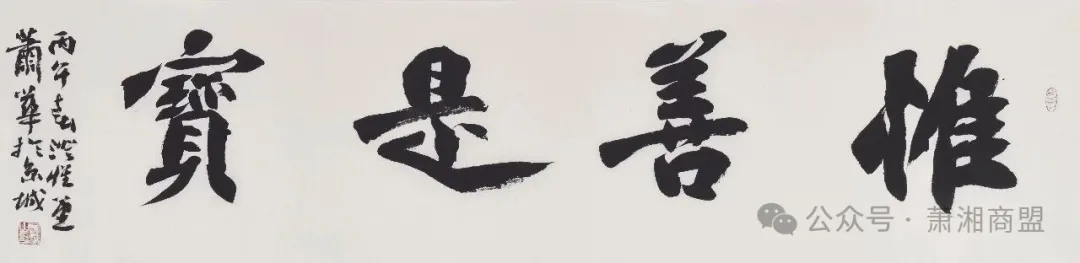 惟善是寶
丙午春澄懷畫
蕭華於京城
公众号·萧湘商盟